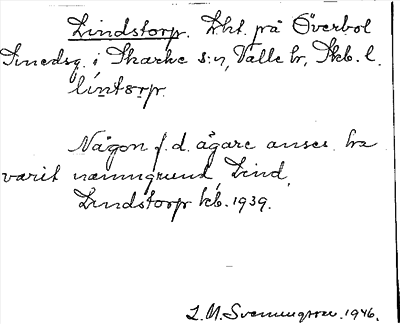 Lindstorp. Lht. på Överbol
Smedsg. i Skarke s:n, Valle hr, Skb. l.
lintsrp.
Någon f. d. ägare anses ha
varit namngivit Lind.
Lindstorp kb. 1939.
L. M. Svenungsson. 1946.